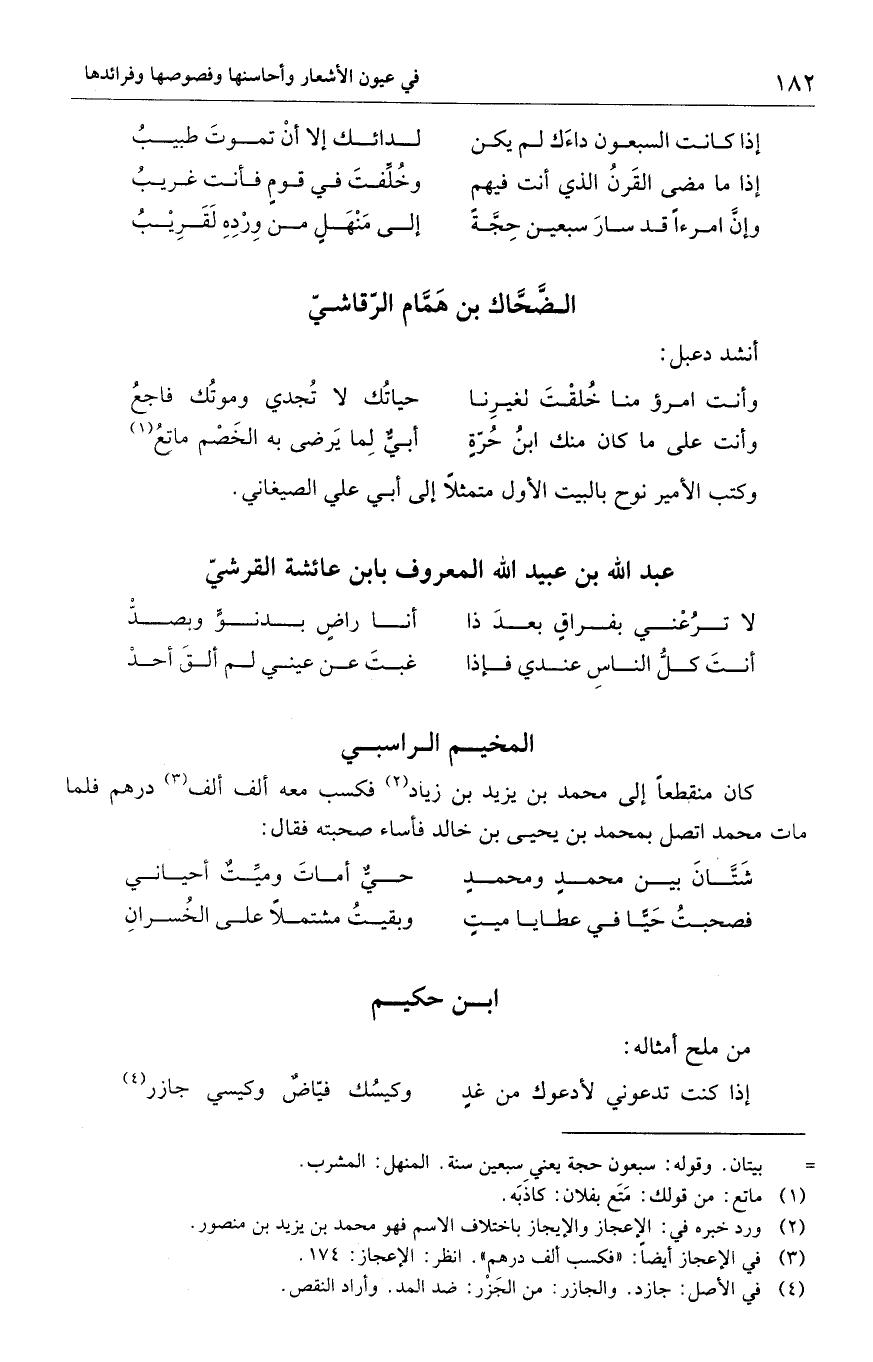 ١٨٢ في عيون الأشعار وأحاسنها وفصوصها وفرائدها
إذا كانت السبعون داءَك لم يكن لدائك إلا أنْ تموتَ طبيبُ
إذا ما مضى القَرنُ الذي أنت فيهم وخُلِّفتَ في قومٍ فأنت غريبُ
وإنَّ امرءاً قد سارَ سبعين حِجَّةً إلى مَنْهَلٍ من وِرْدِهِ لَقَرِيْبُ
الضَّحَّاك بن هَمَّام الرّقاشيّ
أنشد دعبل:
وأنت امرؤ منا خُلقْتَ لغيرِنا حياتُك لا تُجدي وموتُك فاجعُ
وأنت على ما كان منك ابنُ حُرّةٍ أبيٌّ لِما يَرضى به الخَصْم ماتعُ(١)
وكتب الأمير نوح بالبيت الأول متمثلاً إلى أبي علي الصيغاني.
عبد الله بن عبيد الله المعروف بابن عائشة القرشيّ
لا تَرُعْني بفراقٍ بعدَ ذا أنا راضٍ بدنوٍّ وبصدّْ
أنتَ كلُّ الناسِ عندي فإذا غبتَ عن عيني لم ألقَ أحدْ
المخيم الراسبي
كان منقطعاً إلى محمد بن يزيد بن زياد(٢) فكسب معه ألف ألف(٣) درهم فلما
مات محمد اتصل بمحمد بن يحيى بن خالد فأساء صحبته فقال:
شَتَّانَ بين محمدٍ ومحمدٍ حيٌّ أماتَ وميِّتٌ أحياني
فصحبتُ حَيًّا في عطايا ميتٍ وبقيتُ مشتملاً على الخُسرانِ
ابن حكيم
من ملح أمثاله:
إذا كنت تدعوني لأدعوك من غدٍ وكيسُك فيّاضٌ وكيسي جازر(٤)
= بيتان. وقوله: سبعون حجة يعني سبعين سنة. المنهل: المشرب.
(١) ماتع: من قولك: مَتَع بفلان: كاذَبَه.
(٢) ورد خبره في: الإعجاز والإيجاز باختلاف الاسم فهو محمد بن يزيد بن منصور.
(٣) في الإعجاز أيضاً: «فكسب ألف درهم». انظر: الإعجاز: ١٧٤.
(٤) في الأصل: جازد. والجازر: من الجَزْر: ضد المد. وأراد النقص.